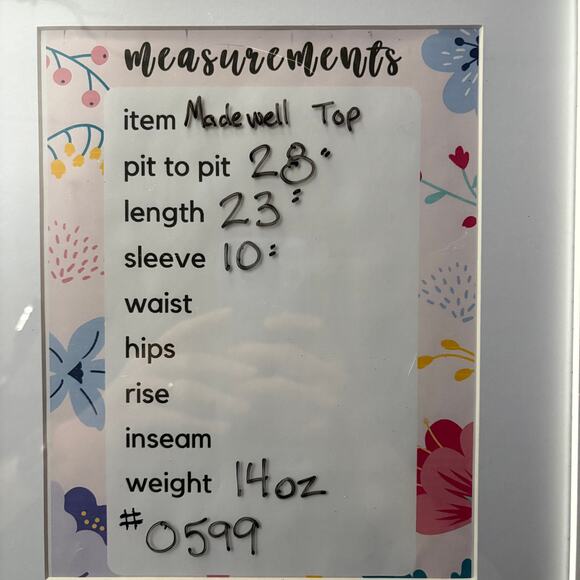 measurements
item Madewell Top
pit to pit 28"
length 23"
sleeve 10"
waist
hips
rise
inseam
weight 14oz
#0599